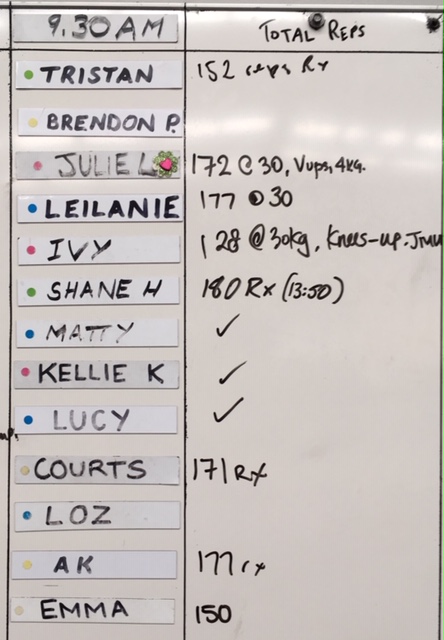 9.30AM TOTAL REPS
TRISTAN 152 reps Rx
BRENDON P.
JULIE L 172 @ 30, Vups, 4kg.
LEILANIE 177 @ 30
IVY 128 @ 30kg, Knees-up.
SHANE H 180 Rx (13:50)
MATTY ✓
KELLIE K ✓
LUCY ✓
COURTS 171 Rx
LOZ
AK 177 rx
EMMA 150